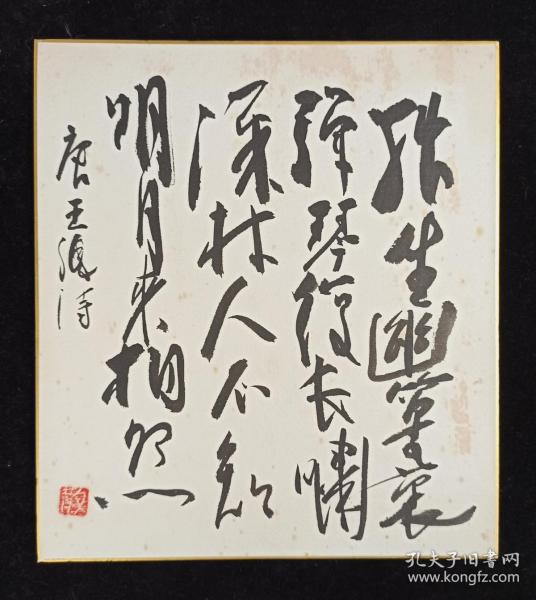 独坐幽篁裏
彈琴復长嘯
深林人不知
明月来相照
唐王維诗
孔夫子旧书网
www.kongfz.com